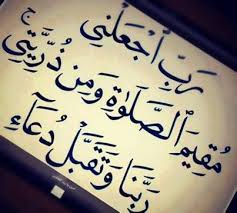 رَبِّ اجْعَلْنِي
مُقِيمَ الصَّلَاةِ وَمِن ذُرِّيَّتِي ج
رَبَّنَا وَتَقَبَّلْ دُعَاءِ